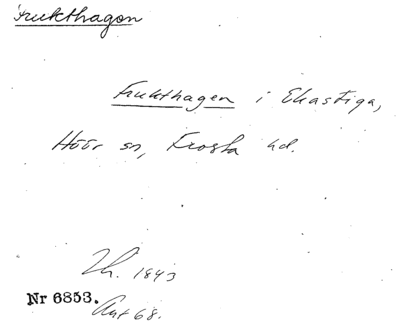 Frukthagen
Frukthagen i Ekastiga,
Höör sn, Frosta hd.
Th. 1843
Nr 6853.
Avt 68.